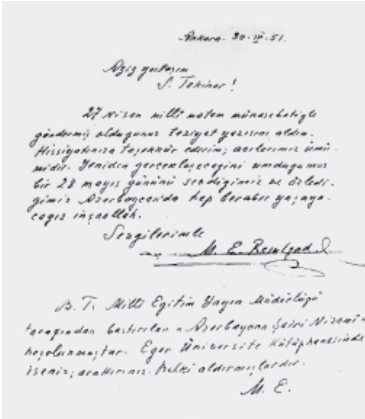 Ankara. 30.IV.51.
Aziz yurtdaşım
S. Tekiner!
27 Nisan milli matem münasebetiyle
göndermiş olduğunuz taziyet yazısını aldım.
Hissiyatınıza teşekkür ederim; acılarımız ümü
midir. Yeniden gerçekleşeceğini umduğumuz
bir 28 mayıs gününü sevdiğimiz ve özledi-
ğimiz Azerbaycanda hep beraber yaşaya-
cağız inşallah.
Sevgilerimle
M. E. Resulzade
B. T. Milli Eğitim Yayın Müdürlüğü
tarafından bastırılan "Azerbaycan Şairi Nizami"
Eğer Üniversite Kütüphanesinde
iseniz, aratırınız. Belki aldırmışlardır.
M. E.